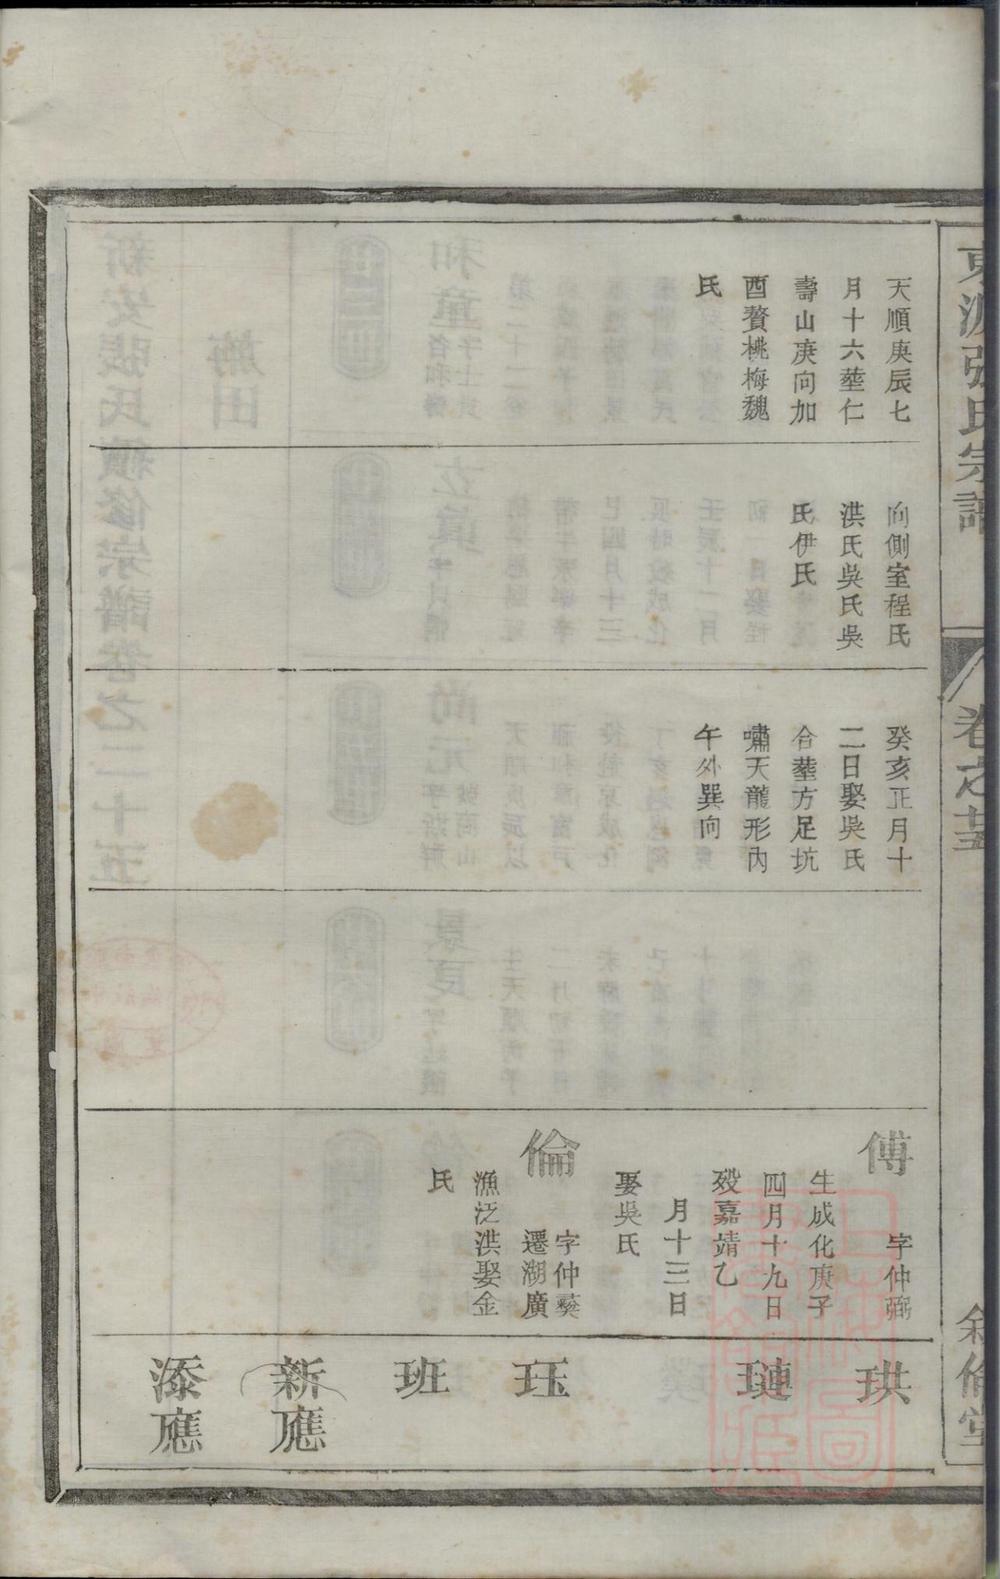 東源張氏宗譜
卷之廿五
敘倫堂
天順庚辰七
月十六塟仁
壽山庚向加
酉贅桃梅魏
氏
向側室程氏
洪氏吳氏吳
氏伊氏
癸亥正月十
二日娶吳氏
合塟方足坑
嘯天龍形內
午外巽向
傅
字仲弼
生成化庚子
四月十九日
歿嘉靖乙
月十三日
娶吳氏
倫
字仲彝
遷湖廣
漁泛洪娶金
氏
珙
璉
珏
班
新應
添應